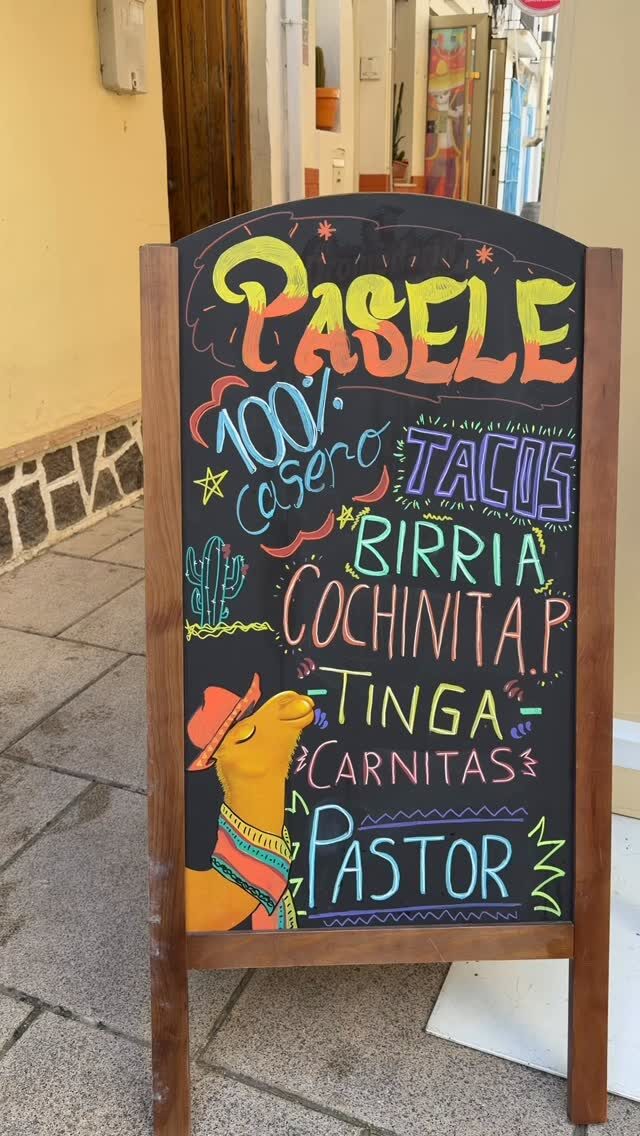 PASELE
100%
casero
TACOS
BIRRIA
COCHINITA.P
TINGA
CARNITAS
PASTOR